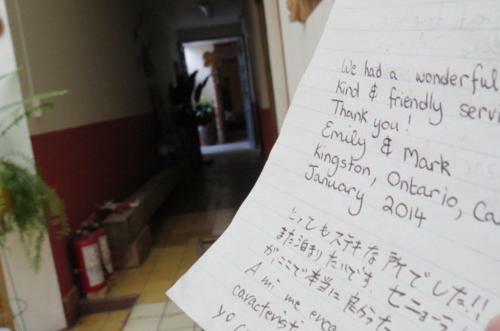 We had a wonderful
Kind & friendly servi
Thank you!
Emily & Mark
Kingston, Ontario, Ca
January 2014
とってもステキな所でした!!
また泊まりたいです。セニョーラ
がここで本当に良かった
A mi me enca
caracterist
yo